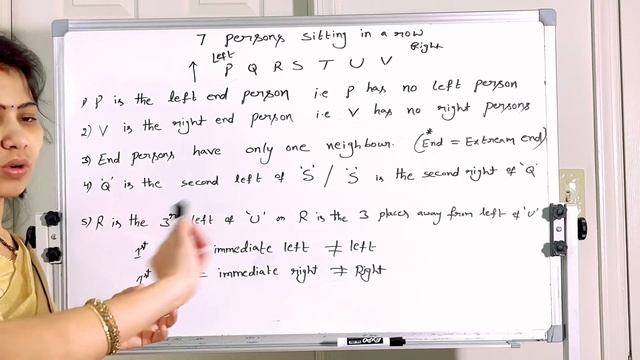 7 persons sitting in a row
Left Right
↑ P Q R S T U V
1) P is the left end person i.e P has no left person
2) V is the right end person i.e V has no right persons
3) End persons have only one neighbour. (*End = Extream end)
4) 'Q' is the second left of 'S' / 'S' is the second right of 'Q'
5) R is the 3rd left of 'U' or R is the 3 places away from left of 'U'
1st immediate left ≠ left
= immediate right ≠ Right
EXPO